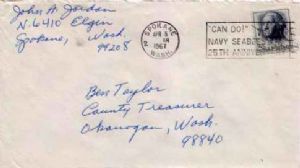 John A. Jordan
N. 6410 Elgin
Spokane, Wash.
99208
SPOKANE
WASH.
APR 5
1967
"CAN DO!"
NAVY SEABEE
25TH ANNIV
Ben Taylor
County Treasurer
Okanogan, Wash.
98840